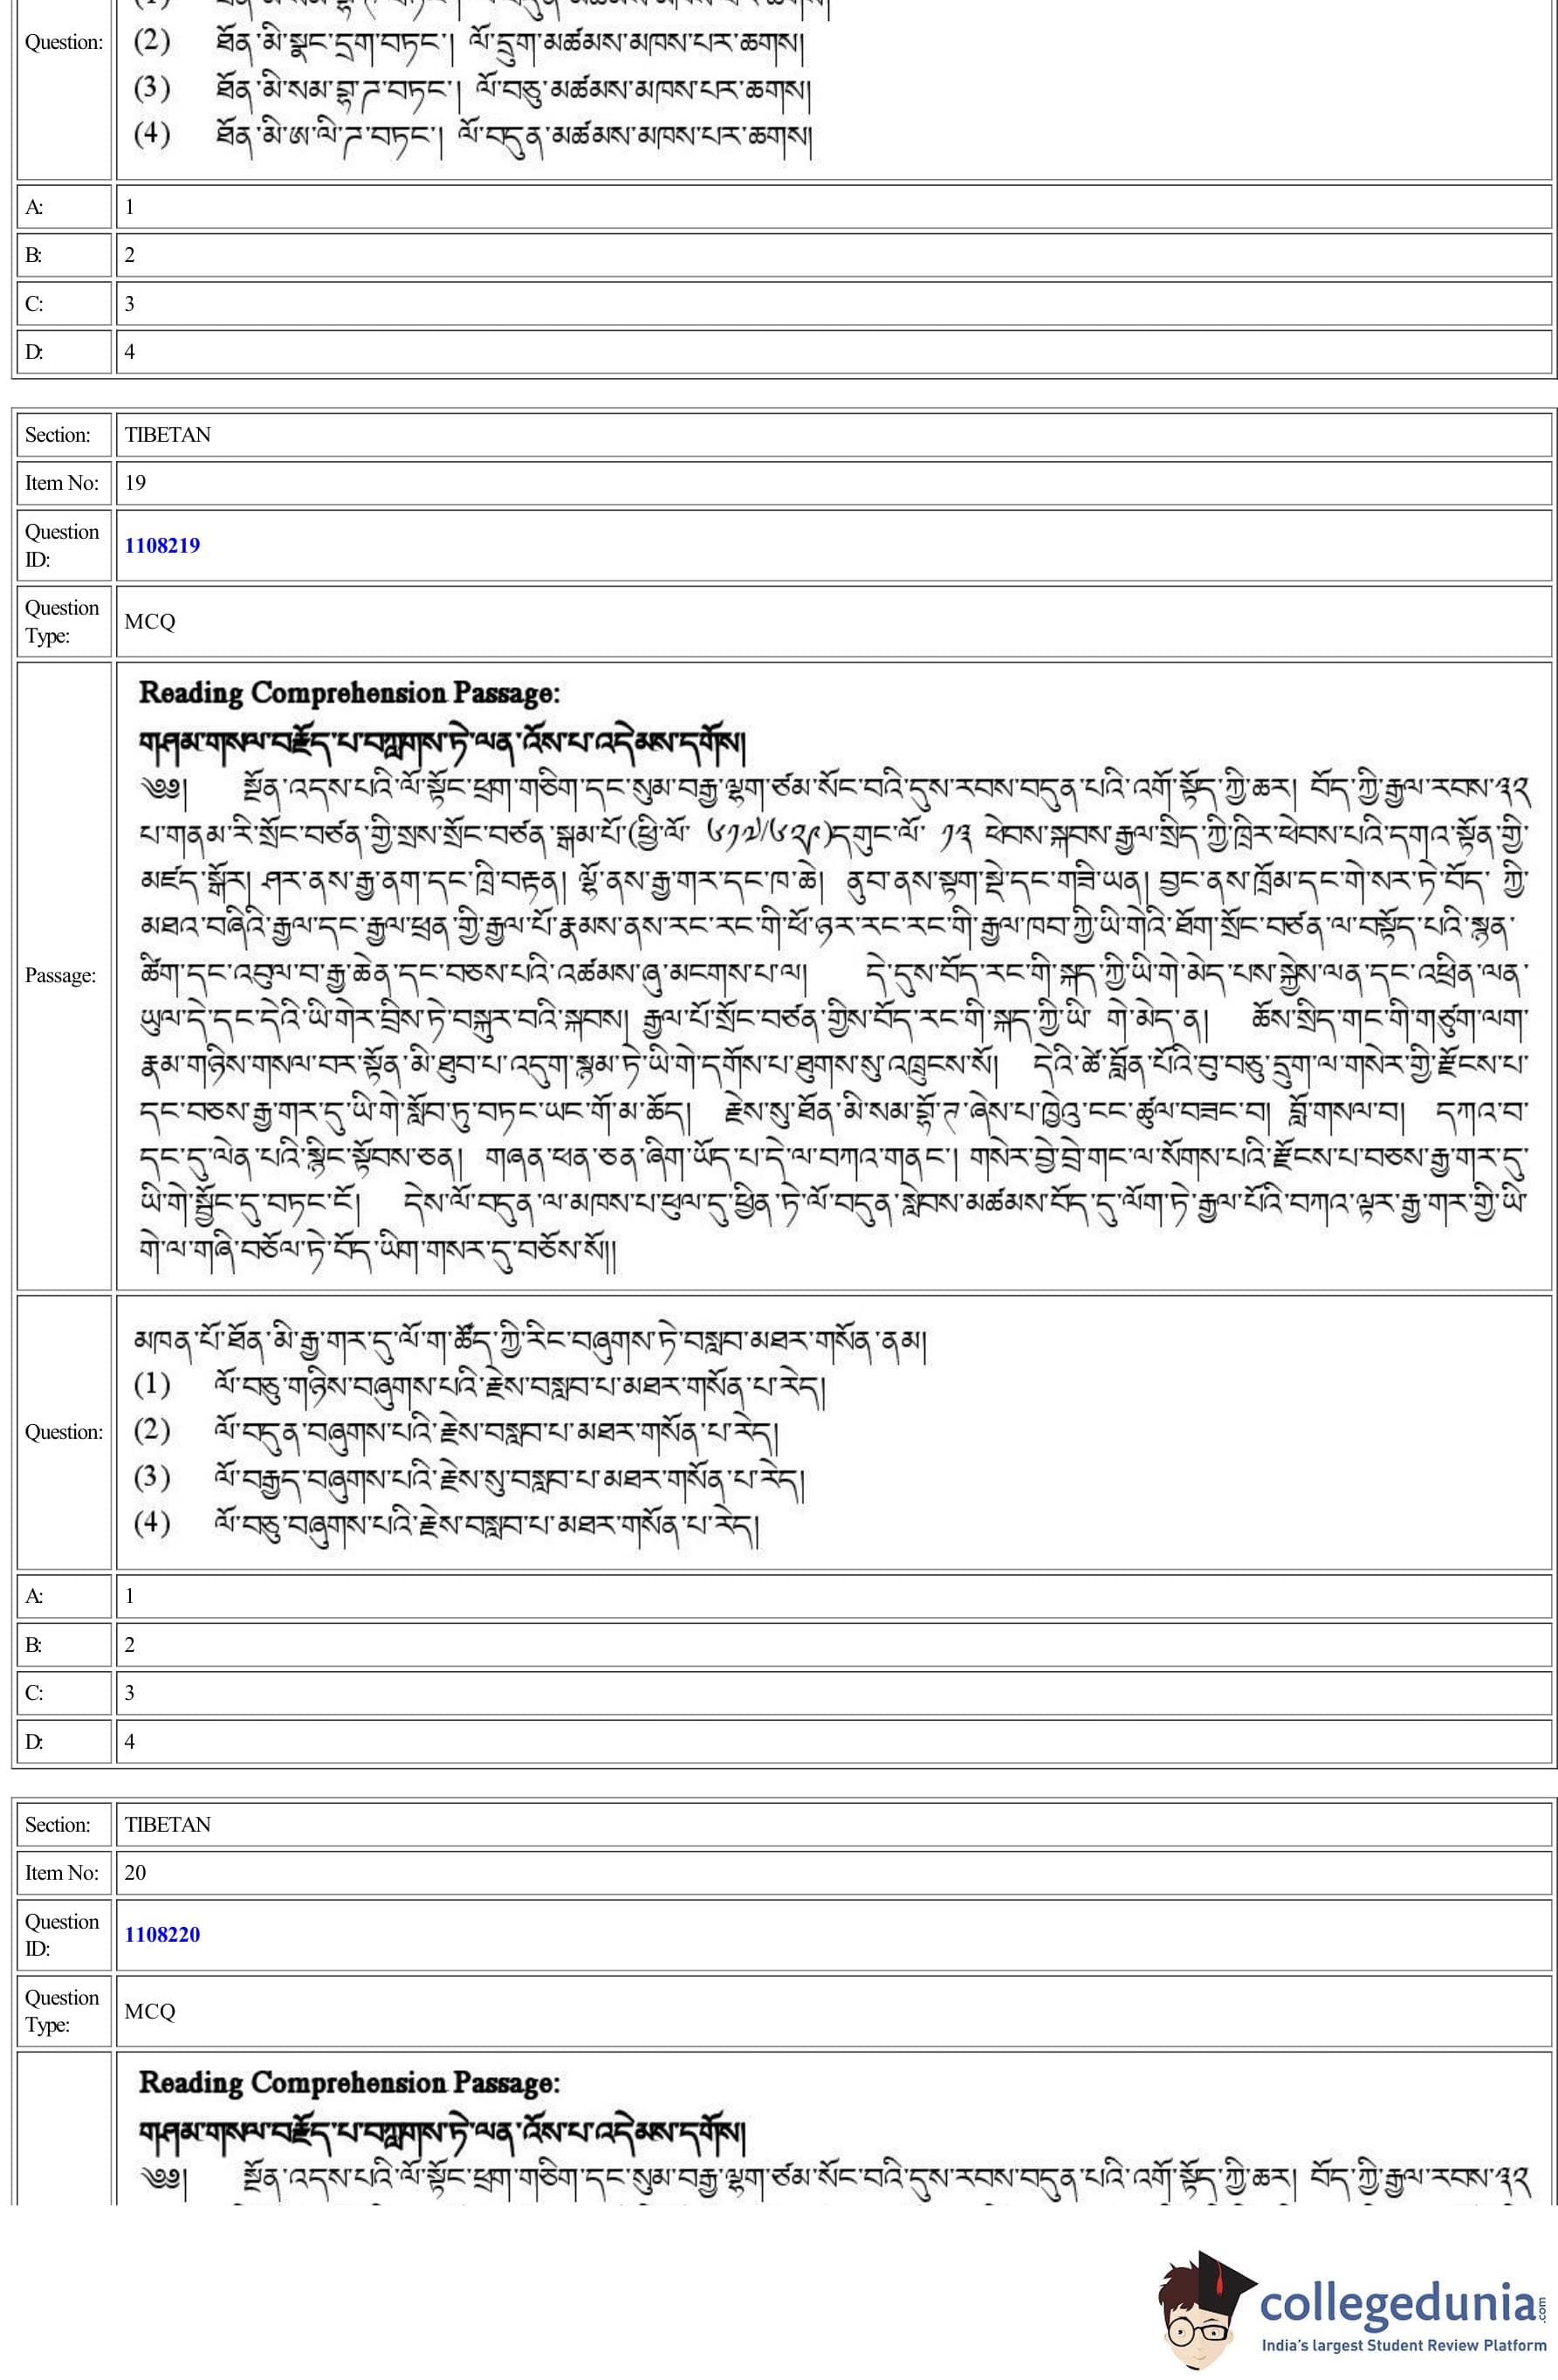 Question:
(2) ཐོན་མི་སྣང་དྲག་བཏང་། ལོ་དྲུག་མཚམས་མཁས་པར་ཆགས།
(3) ཐོན་མི་སམ་བྷ་ཊ་བཏང་། ལོ་བཅུ་མཚམས་མཁས་པར་ཆགས།
(4) ཐོན་མི་ཨ་ལི་ཊ་བཏང་། ལོ་བདུན་མཚམས་མཁས་པར་ཆགས།
A: 1
B: 2
C: 3
D: 4
Section: TIBETAN
Item No: 19
Question ID: 1108219
Question Type: MCQ
Passage:
Reading Comprehension Passage:
གཤམ་གསལ་བརྗོད་པ་བཀླགས་ཏེ་ལན་འོས་པ་འདེམས་དགོས།
༄༅། སྔོན་འདས་པའི་ལོ་སྟོང་ཕྲག་གཅིག་དང་སུམ་བརྒྱ་ལྷག་ཙམ་སོང་བའི་དུས་རབས་བདུན་པའི་འགོ་སྟོད་ཀྱི་ཆར། བོད་ཀྱི་རྒྱལ་རབས་༣༢
པ་གནམ་རི་སྲོང་བཙན་གྱི་སྲས་སྲོང་བཙན་སྒམ་པོ་(ཕྱི་ལོ་ ༦༡༧/༦༢༩)དགུང་ལོ་ ༡༣ ཕེབས་སྐབས་རྒྱལ་སྲིད་ཀྱི་ཁྲིར་ཕེབས་པའི་དགའ་སྟོན་གྱི་
མཛད་སྒོར། ཤར་ནས་རྒྱ་ནག་དང་ཁྲི་བརྟན། ལྷོ་ནས་རྒྱ་གར་དང་ཁ་ཆེ། ནུབ་ནས་སྟག་སྡེ་དང་གཟི་ཡན། བྱང་ནས་ཁྲོམ་དང་གེ་སར་ཏེ་བོད་ ཀྱི་
མཐའ་བཞིའི་རྒྱལ་དང་རྒྱལ་ཕྲན་གྱི་རྒྱལ་པོ་རྣམས་ནས་རང་རང་གི་ཕོ་ཉར་རང་རང་གི་རྒྱལ་ཁབ་ཀྱི་ཡི་གེའི་ཐོག་སྲོང་བཙན་ལ་བསྟོད་པའི་སྙན་
ཚིག་དང་འབུལ་བ་རྒྱ་ཆེན་དང་བཅས་པའི་འཚམས་ཞུ་མངགས་པ་ལ། དེ་དུས་བོད་རང་གི་སྐད་ཀྱི་ཡི་གེ་མེད་པས་སྐྱེས་ལན་དང་འཕྲིན་ལན་
ཡུལ་དེ་དང་དེའི་ཡི་གེར་བྲིས་ཏེ་བསྐུར་བའི་སྐབས། རྒྱལ་པོ་སྲོང་བཙན་གྱིས་བོད་རང་གི་སྐད་ཀྱི་ཡི་ གེ་མེད་ན། ཆོས་སྲིད་གང་གི་གཙུག་ལག་
རྣམ་གཉིས་གསལ་བར་སྟོན་མི་ཐུབ་པ་འདུག་སྙམ་ཏེ་ཡི་གེ་དགོས་པ་ཐུགས་སུ་འཁྲུངས་སོ། དེའི་ཚེ་བློན་པོའི་བུ་བཅུ་དྲུག་ལ་གསེར་གྱི་རྫོངས་པ་
དང་བཅས་རྒྱ་གར་དུ་ཡི་གེ་སློབ་ཏུ་བཏང་ཡང་གོ་མ་ཆོད། རྗེས་སུ་ཐོན་མི་སམ་བྷོ་ཊ་ཞེས་པ་ཁྱེའུ་ངང་ཚུལ་བཟང་བ། བློ་གསལ་བ། དཀའ་བ་
དང་དུ་ལེན་པའི་སྙིང་སྟོབས་ཅན། གཞན་ཕན་ཅན་ཞིག་ཡོད་པ་དེ་ལ་བཀའ་གནང་། གསེར་བྱེ་བྲེ་གང་ལ་སོགས་པའི་རྫོངས་པ་བཅས་རྒྱ་གར་དུ་
ཡི་གེ་སྦྱོང་དུ་བཏང་ངོ། དེས་ལོ་བདུན་ལ་མཁས་པ་ཕུལ་དུ་ཕྱིན་ཏེ་ལོ་བདུན་སླེབས་མཚམས་བོད་དུ་ལོག་ཏེ་རྒྱལ་པོའི་བཀའ་ལྟར་རྒྱ་གར་གྱི་ཡི་
གེ་ལ་གཞི་བཅོལ་ཏེ་བོད་ཡིག་གསར་དུ་བཅོས་སོ།།
Question:
མཁན་པོ་ཐོན་མི་རྒྱ་གར་དུ་ལོ་ག་ཚོད་ཀྱི་རིང་བཞུགས་ཏེ་བསླབ་མཐར་གསོན་ནམ།
(1) ལོ་བཅུ་གཉིས་བཞུགས་པའི་རྗེས་བསླབ་པ་མཐར་གསོན་པ་རེད།
(2) ལོ་བདུན་བཞུགས་པའི་རྗེས་བསླབ་པ་མཐར་གསོན་པ་རེད།
(3) ལོ་བརྒྱད་བཞུགས་པའི་རྗེས་སུ་བསླབ་པ་མཐར་གསོན་པ་རེད།
(4) ལོ་བཅུ་བཞུགས་པའི་རྗེས་བསླབ་པ་མཐར་གསོན་པ་རེད།
A: 1
B: 2
C: 3
D: 4
Section: TIBETAN
Item No: 20
Question ID: 1108220
Question Type: MCQ
Reading Comprehension Passage:
གཤམ་གསལ་བརྗོད་པ་བཀླགས་ཏེ་ལན་འོས་པ་འདེམས་དགོས།
༄༅། སྔོན་འདས་པའི་ལོ་སྟོང་ཕྲག་གཅིག་དང་སུམ་བརྒྱ་ལྷག་ཙམ་སོང་བའི་དུས་རབས་བདུན་པའི་འགོ་སྟོད་ཀྱི་ཆར། བོད་ཀྱི་རྒྱལ་རབས་༣༢
collegedunia.com
India's largest Student Review Platform